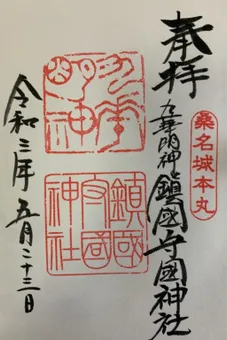 奉拝
桑名城本丸
九華明神
鎮國守國神社
九華
明神
鎮國
守國
神社
令和三年五月二十三日